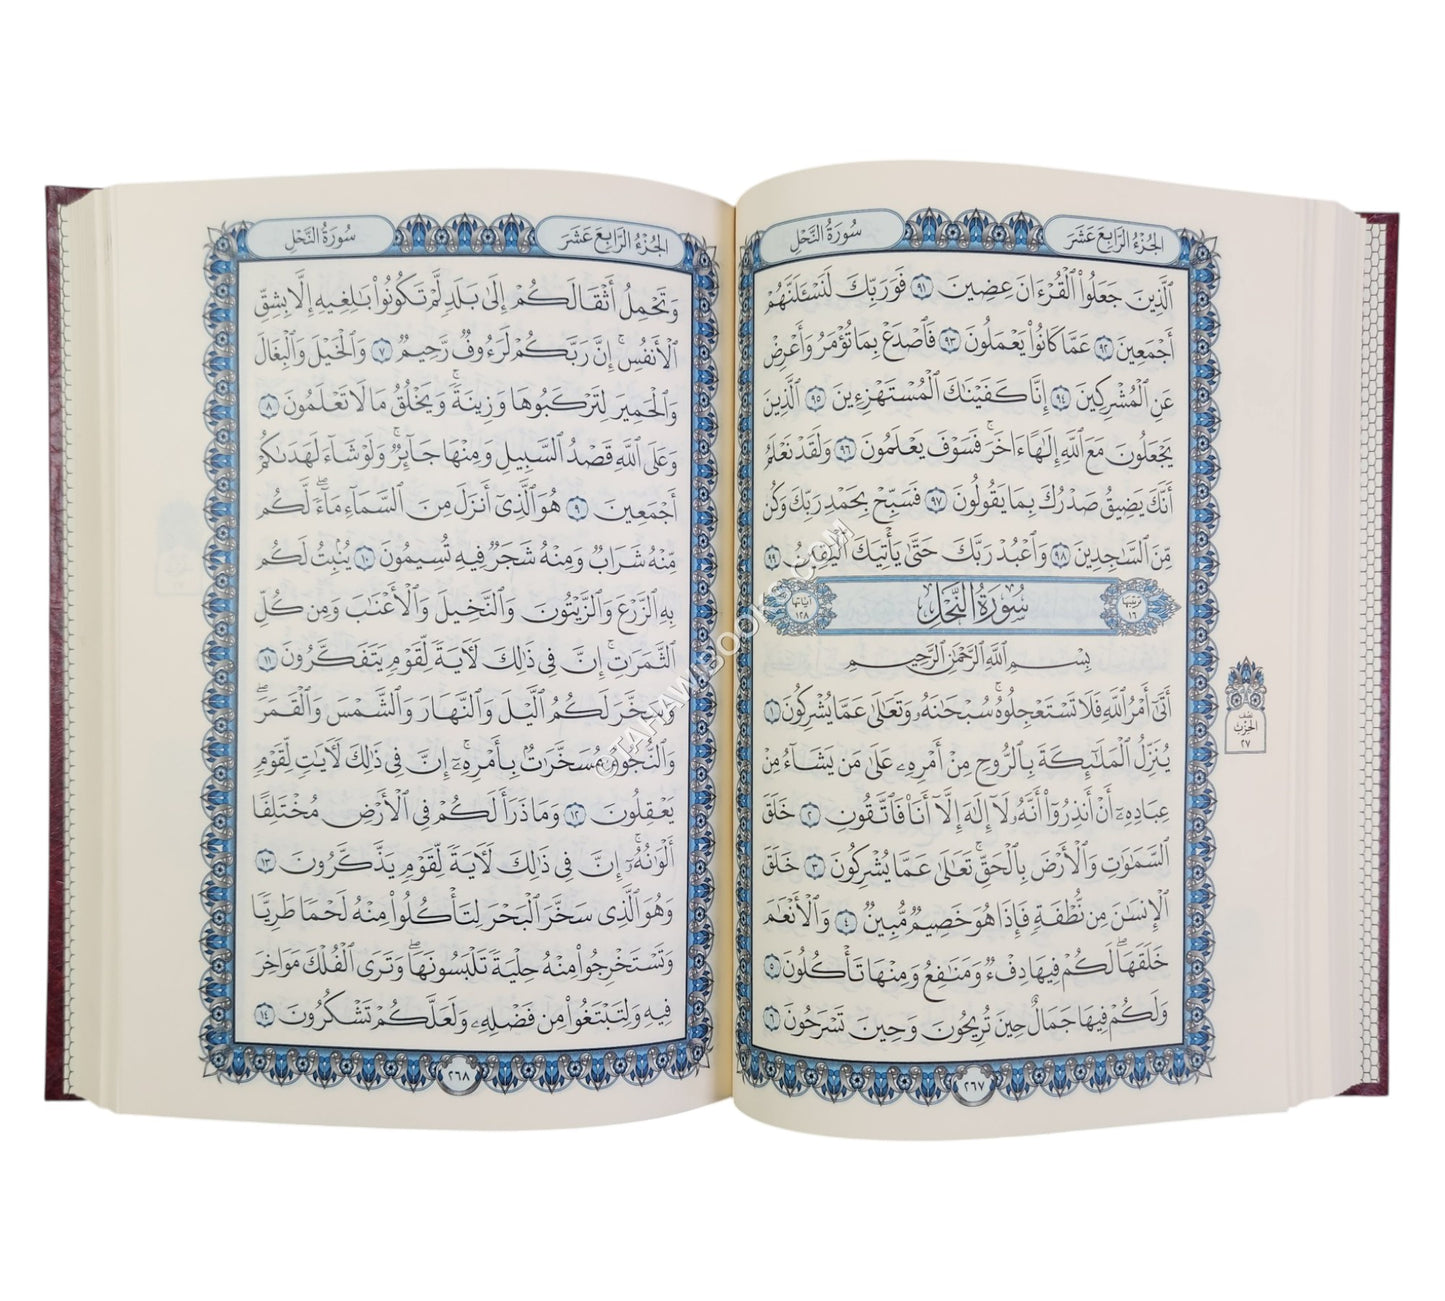 الجزء الرابع عشر
سورة النحل
ٱلَّذِينَ جَعَلُوا۟ ٱلْقُرْءَانَ عِضِينَ ٩١ فَوَرَبِّكَ لَنَسْـَٔلَنَّهُمْ
أَجْمَعِينَ ٩٢ عَمَّا كَانُوا۟ يَعْمَلُونَ ٩٣ فَٱصْدَعْ بِمَا تُؤْمَرُ وَأَعْرِضْ
عَنِ ٱلْمُشْرِكِينَ ٩٤ إِنَّا كَفَيْنَـٰكَ ٱلْمُسْتَهْزِءِينَ ٩٥ ٱلَّذِينَ
يَجْعَلُونَ مَعَ ٱللَّهِ إِلَـٰهًا ءَاخَرَ ۚ فَسَوْفَ يَعْلَمُونَ ٩٦ وَلَقَدْ نَعْلَمُ
أَنَّكَ يَضِيقُ صَدْرُكَ بِمَا يَقُولُونَ ٩٧ فَسَبِّحْ بِحَمْدِ رَبِّكَ وَكُن
مِّنَ ٱلسَّـٰجِدِينَ ٩٨ وَٱعْبُدْ رَبَّكَ حَتَّىٰ يَأْتِيَكَ ٱلْيَقِينُ ٩٩
ترتيبها ١٦ سُورَةُ النَّحْلِ آياتها ١٢٨
بِسْمِ ٱللَّهِ ٱلرَّحْمَـٰنِ ٱلرَّحِيمِ
أَتَىٰٓ أَمْرُ ٱللَّهِ فَلَا تَسْتَعْجِلُوهُ ۚ سُبْحَـٰنَهُۥ وَتَعَـٰلَىٰ عَمَّا يُشْرِكُونَ ١
يُنَزِّلُ ٱلْمَلَـٰٓئِكَةَ بِٱلرُّوحِ مِنْ أَمْرِهِۦ عَلَىٰ مَن يَشَآءُ مِنْ
عِبَادِهِۦٓ أَنْ أَنذِرُوٓا۟ أَنَّهُۥ لَآ إِلَـٰهَ إِلَّآ أَنَا۠ فَٱتَّقُونِ ٢ خَلَقَ
ٱلسَّمَـٰوَٰتِ وَٱلْأَرْضَ بِٱلْحَقِّ ۚ تَعَـٰلَىٰ عَمَّا يُشْرِكُونَ ٣ خَلَقَ
ٱلْإِنسَـٰنَ مِن نُّطْفَةٍ فَإِذَا هُوَ خَصِيمٌ مُّبِينٌ ٤ وَٱلْأَنْعَـٰمَ
خَلَقَهَا ۗ لَكُمْ فِيهَا دِفْءٌ وَمَنَـٰفِعُ وَمِنْهَا تَأْكُلُونَ ٥
وَلَكُمْ فِيهَا جَمَالٌ حِينَ تُرِيحُونَ وَحِينَ تَسْرَحُونَ ٦
نصف
الحزب
٢٧
٢٦٧
الجزء الرابع عشر
سورة النحل
وَتَحْمِلُ أَثْقَالَكُمْ إِلَىٰ بَلَدٍ لَّمْ تَكُونُوا۟ بَـٰلِغِيهِ إِلَّا بِشِقِّ
ٱلْأَنفُسِ ۚ إِنَّ رَبَّكُمْ لَرَءُوفٌ رَّحِيمٌ ٧ وَٱلْخَيْلَ وَٱلْبِغَالَ
وَٱلْحَمِيرَ لِتَرْكَبُوهَا وَزِينَةً ۚ وَيَخْلُقُ مَا لَا تَعْلَمُونَ ٨
وَعَلَى ٱللَّهِ قَصْدُ ٱلسَّبِيلِ وَمِنْهَا جَآئِرٌ ۚ وَلَوْ شَآءَ لَهَدَىٰكُمْ
أَجْمَعِينَ ٩ هُوَ ٱلَّذِىٓ أَنزَلَ مِنَ ٱلسَّمَآءِ مَآءً ۖ لَّكُم
مِّنْهُ شَرَابٌ وَمِنْهُ شَجَرٌ فِيهِ تُسِيمُونَ ١٠ يُنۢبِتُ لَكُم
بِهِ ٱلزَّرْعَ وَٱلزَّيْتُونَ وَٱلنَّخِيلَ وَٱلْأَعْنَـٰبَ وَمِن كُلِّ
ٱلثَّمَرَٰتِ ۗ إِنَّ فِى ذَٰلِكَ لَـَٔايَةً لِّقَوْمٍ يَتَفَكَّرُونَ ١١
وَسَخَّرَ لَكُمُ ٱلَّيْلَ وَٱلنَّهَارَ وَٱلشَّمْسَ وَٱلْقَمَرَ ۖ
وَٱلنُّجُومُ مُسَخَّرَٰتٌۢ بِأَمْرِهِۦٓ ۗ إِنَّ فِى ذَٰلِكَ لَـَٔايَـٰتٍ لِّقَوْمٍ
يَعْقِلُونَ ١٢ وَمَا ذَرَأَ لَكُمْ فِى ٱلْأَرْضِ مُخْتَلِفًا
أَلْوَٰنُهُۥٓ ۗ إِنَّ فِى ذَٰلِكَ لَـَٔايَةً لِّقَوْمٍ يَذَّكَّرُونَ ١٣
وَهُوَ ٱلَّذِى سَخَّرَ ٱلْبَحْرَ لِتَأْكُلُوا۟ مِنْهُ لَحْمًا طَرِيًّا
وَتَسْتَخْرِجُوا۟ مِنْهُ حِلْيَةً تَلْبَسُونَهَا ۖ وَتَرَى ٱلْفُلْكَ مَوَاخِرَ
فِيهِ وَلِتَبْتَغُوا۟ مِن فَضْلِهِۦ وَلَعَلَّكُمْ تَشْكُرُونَ ١٤
٢٦٨
©TAHAWIBOOKS.COM